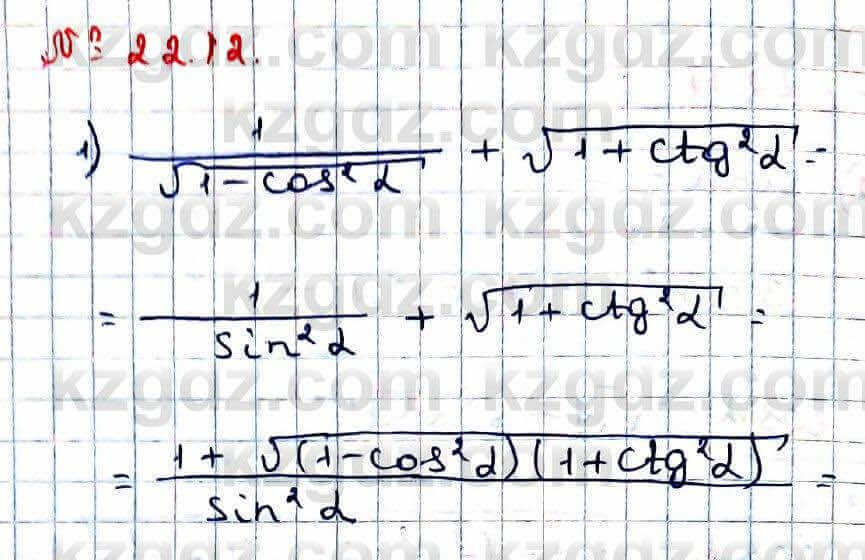 № 22.12.
1) 1/√(1 - cos²α) + √(1 + ctg²α) =
= 1/sin²α + √(1 + ctg²α) =
= (1 + √((1 - cos²α)(1 + ctg²α)))/sin²α =
kzgdz.com kzgdz.com
kzgdz.com
kzgdz.com kzgdz.com
kzgdz.com
kzgdz.com kzgdz.com
kzgdz.com
kzgdz.com kzgdz.com